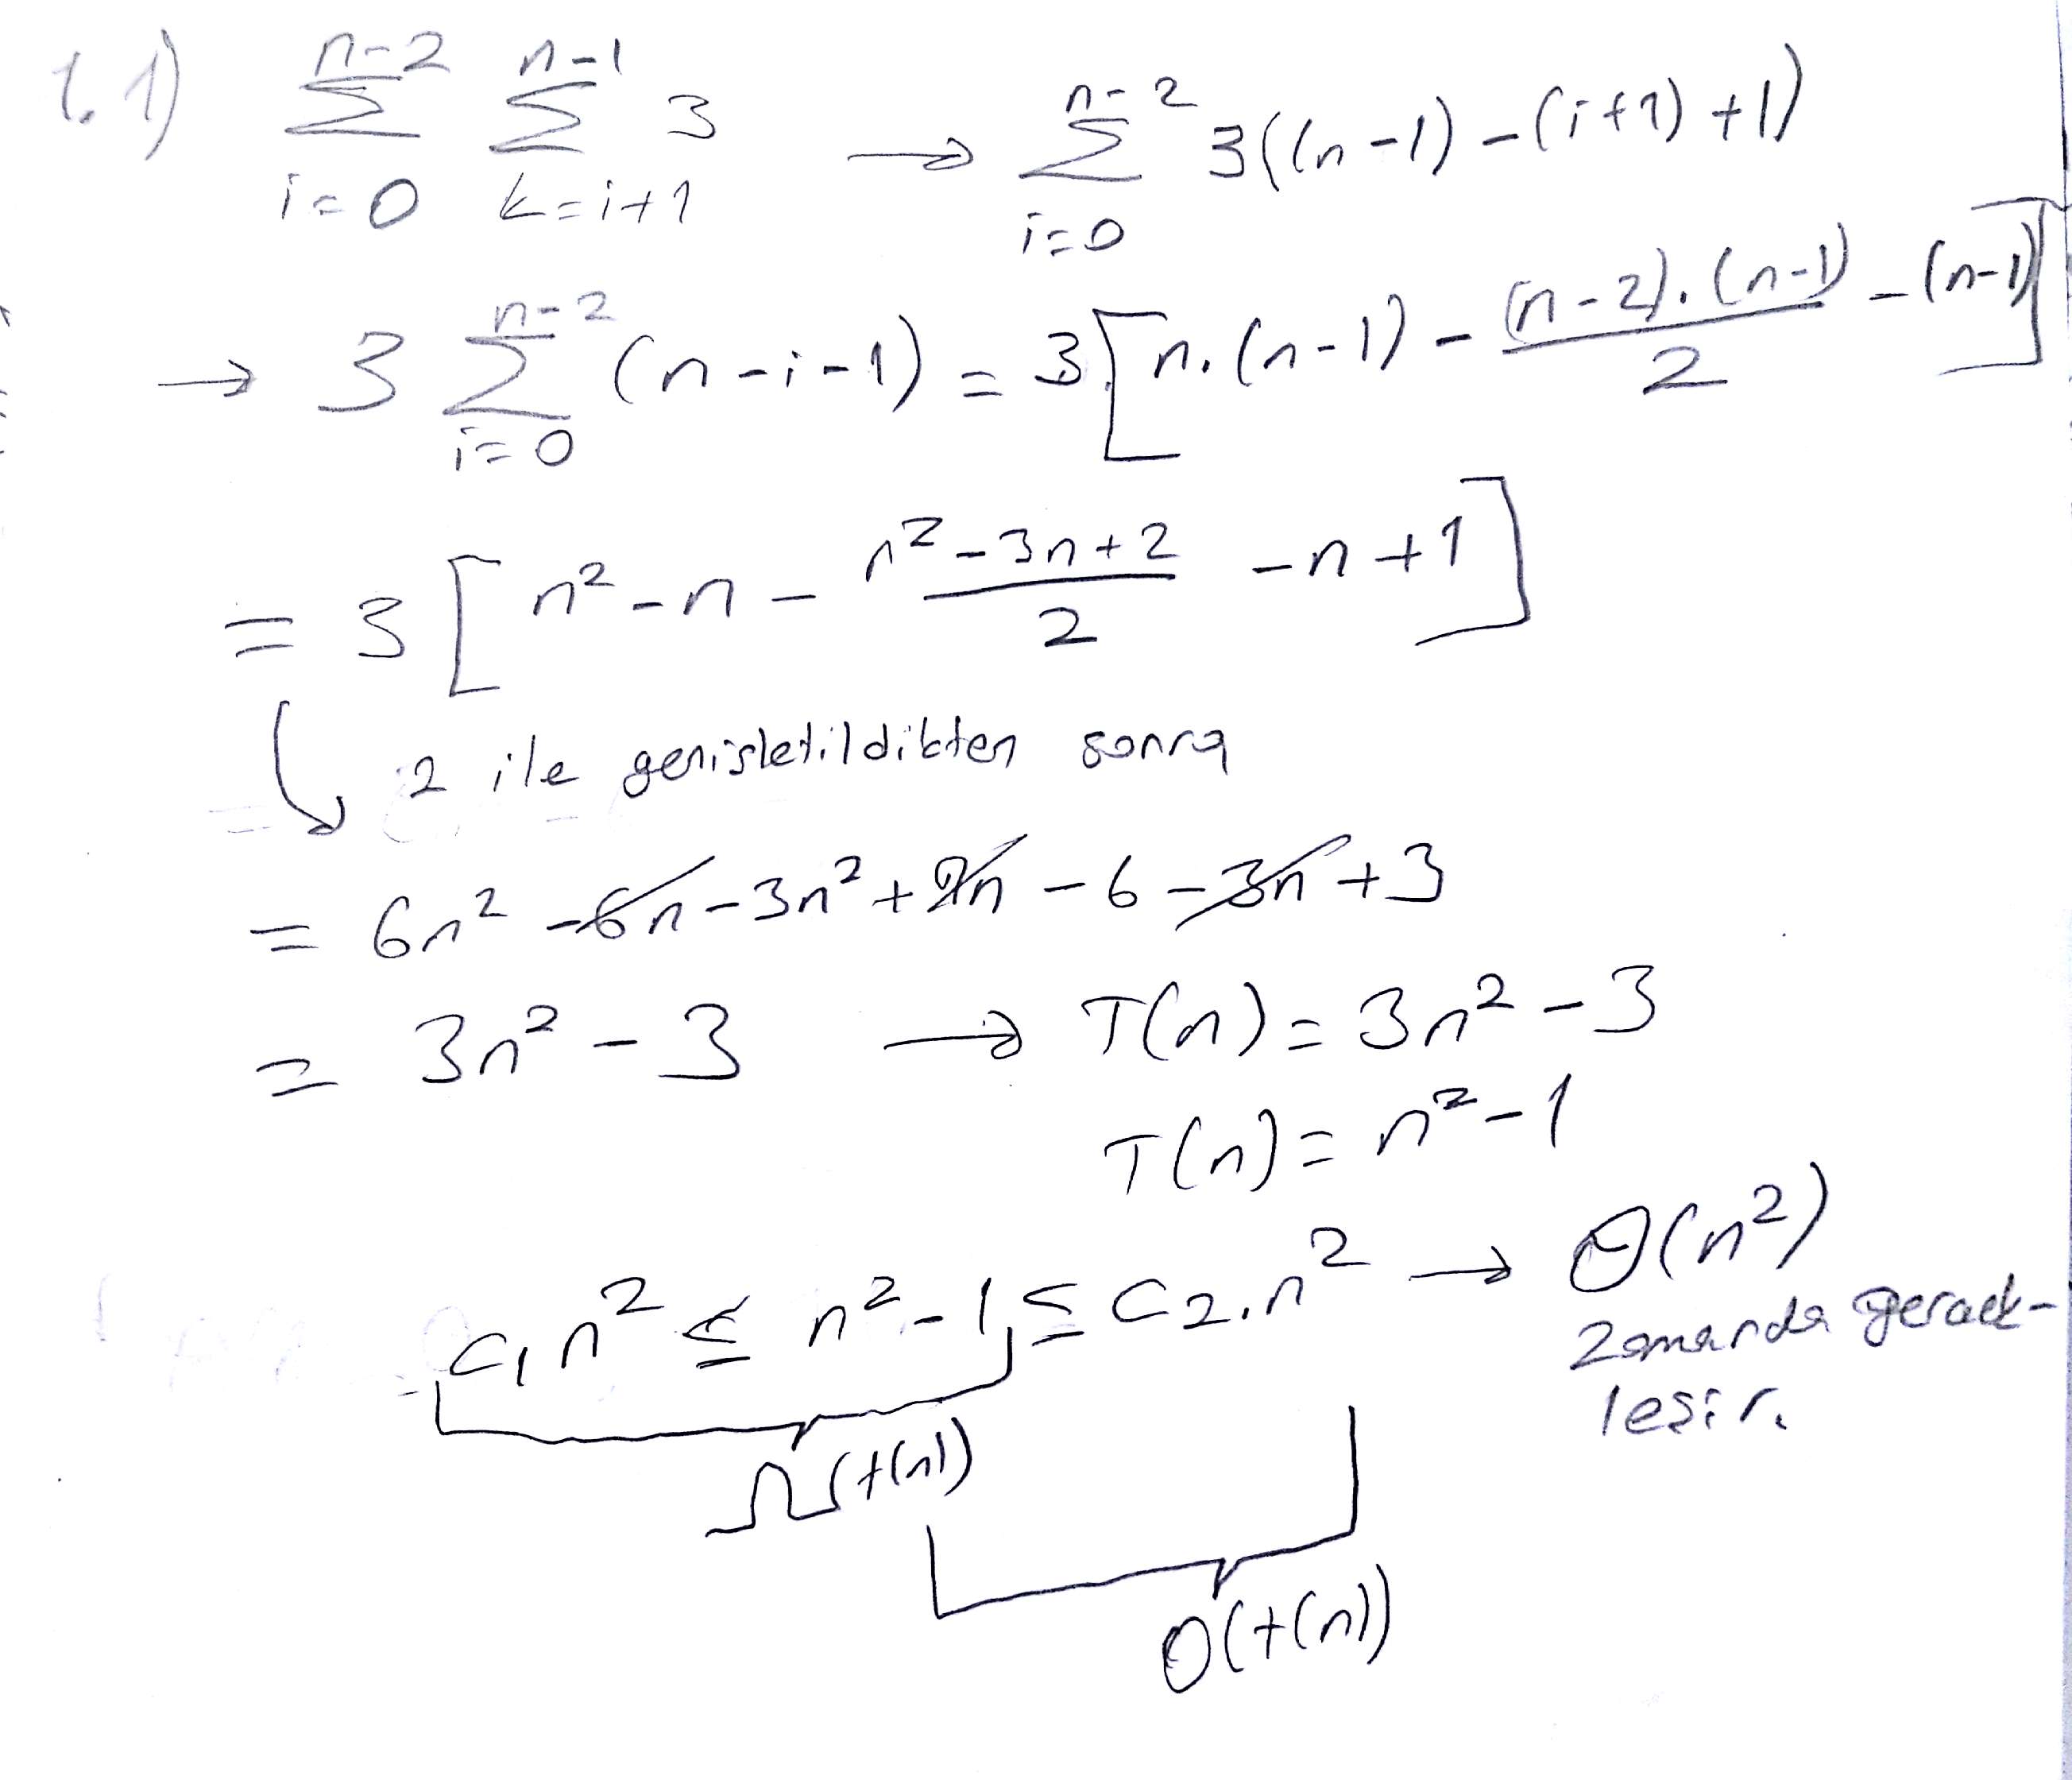 1.1) n-2 Σ i=0 n-1 Σ k=i+1 3 → n-2 Σ i=0 3((n-1)-(i+1)+1)
→ 3 n-2 Σ i=0 (n-i-1) = 3[n.(n-1) - (n-2).(n-1)/2 - (n-1)]
= 3[n² - n - n²-3n+2/2 - n + 1]
2 ile genişletildikten sonra
= 6n² - 6n - 3n² + 9n - 6 - 3n + 3
= 3n² - 3 → T(n) = 3n² - 3
T(n) = n² - 1
c₁n² ≤ n² - 1 ≤ c₂.n² → Θ(n²)
zamanda gerçek-
leşir.
Ω(t(n))
O(t(n))